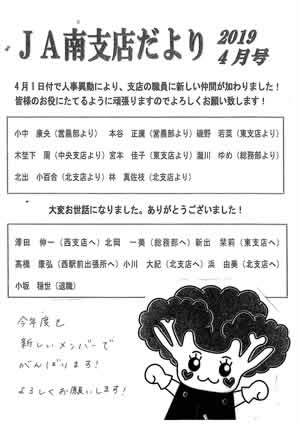 JA南支店だより 2019
4月号
4月1日付で人事異動により、支店の職員に新しい仲間が加わりました！
皆様のお役にたてるように頑張りますのでよろしくお願い致します！
小中 康央（営農部より） 本谷 正廣（営農部より） 磯野 若菜（東支店より）
木埜下 周（中央支店より） 宮本 佳子（東支店より） 瀧川 ゆめ（総務部より）
北出 小百合（北支店より） 林 真佐枝（北支店より）
大変お世話になりました。ありがとうございました！
澤田 伸一（西支店へ） 北岡 一美（総務部へ） 新出 茉莉（東支店へ）
高橋 康弘（西駅前出張所へ） 小川 大記（北支店へ） 浜 由美（北支店へ）
小坂 穣世（退職）
今年度も
新しいメンバーで
がんばります！
よろしくお願いします！